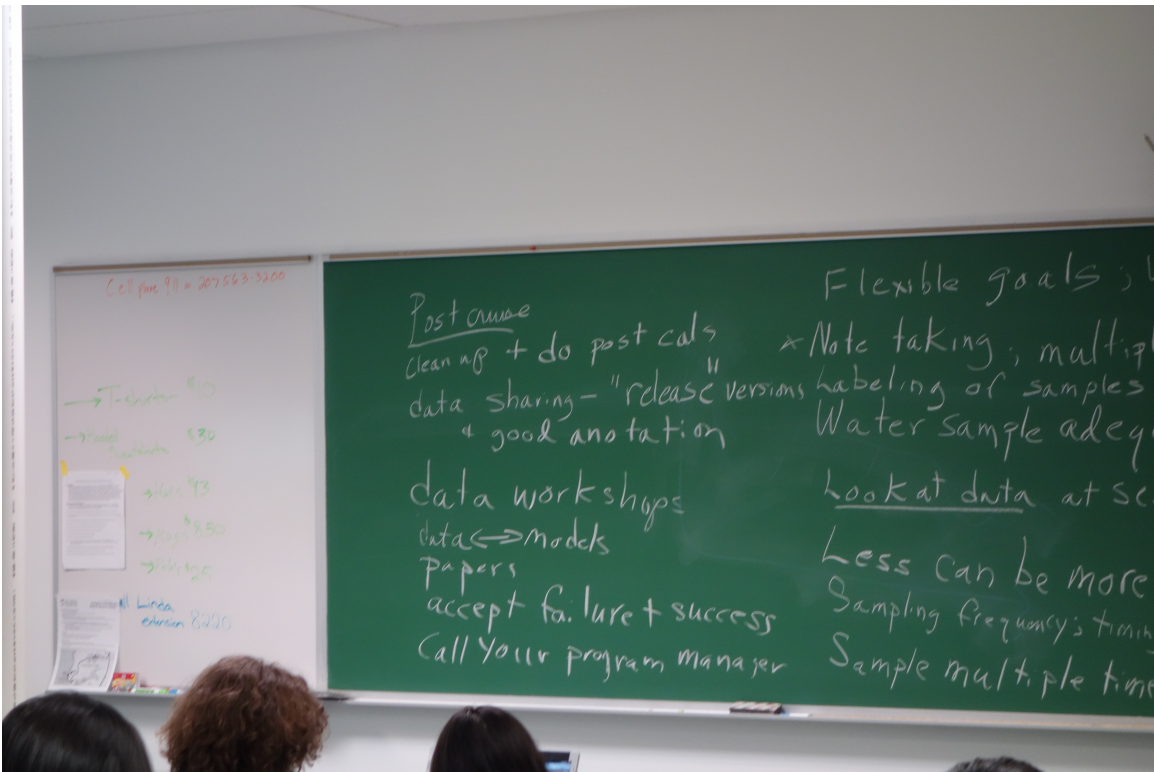 Cell phone 911 = 207 563-3200
$10
$30
$93
$850
$25
Linda
extension 8220
Post cruise
clean up + do post cals
data sharing - "release" versions
+ good anotation
data workshops
data <-> models
papers
accept failure + success
Call Your program manager
Flexible goals ;
* Note taking ; multipl
Labeling of samples
Water sample adeq
Look at data at se
Less can be more
Sampling frequency; timin
Sample multiple time